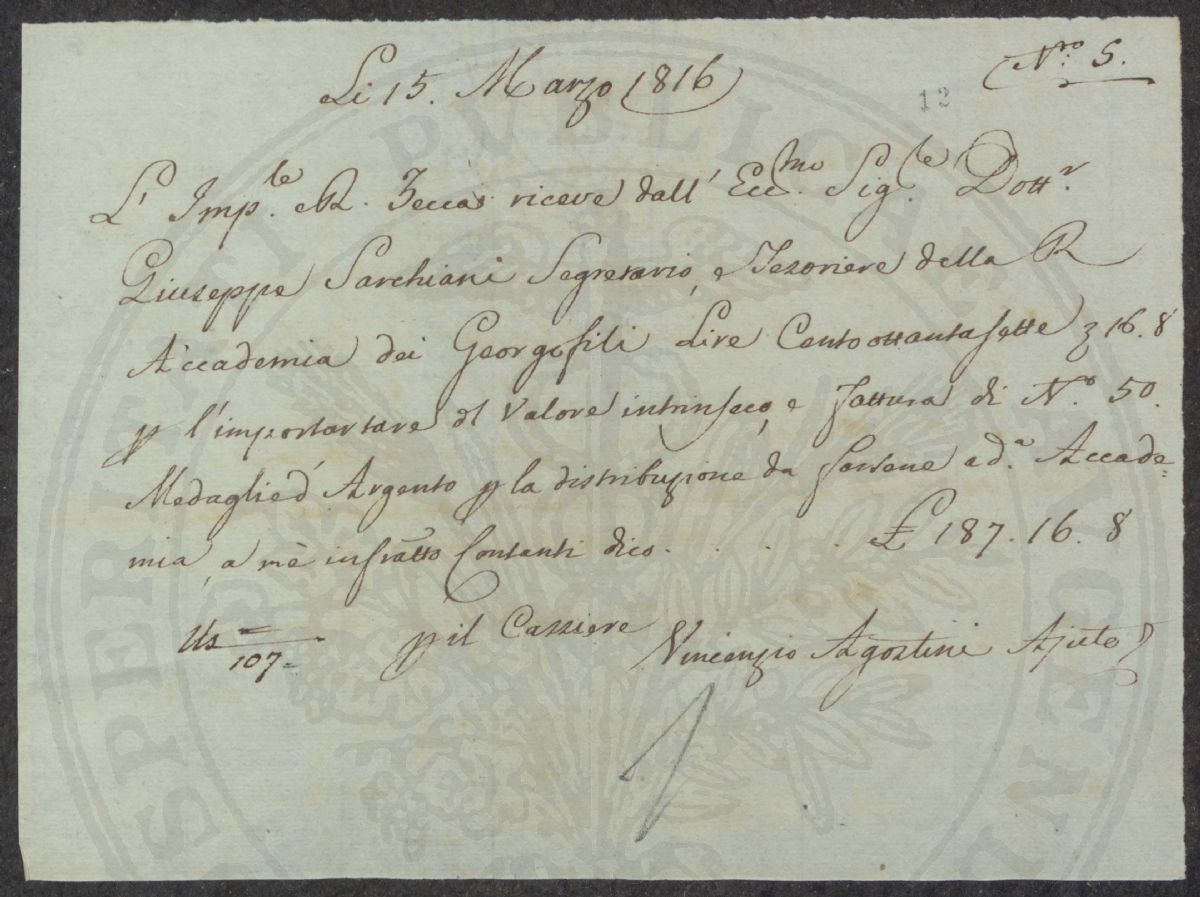 N.ro 5.
12
Li 15. Marzo 1816
L' Imp.le e R. Zecca riceve dall' Ecc.mo Sig.le Dott.r
Giuseppe Sarchiani Segretario, e Tesoriere della R
Accademia dei Georgofili Lire Centoottantasette 16. 8
p l'importartare dl Valore intrinseco, e fattura di N.o 50.
Medaglie d'Argento p la distribuzione da farsene ad.a Accade=
mia, a me infratto Contanti dico . . . . £ 187. 16. 8
107=
p il Cassiere
Vincenzio Agostini Ajuto
PROSPERITATI PUBLICAE AUGENDAE